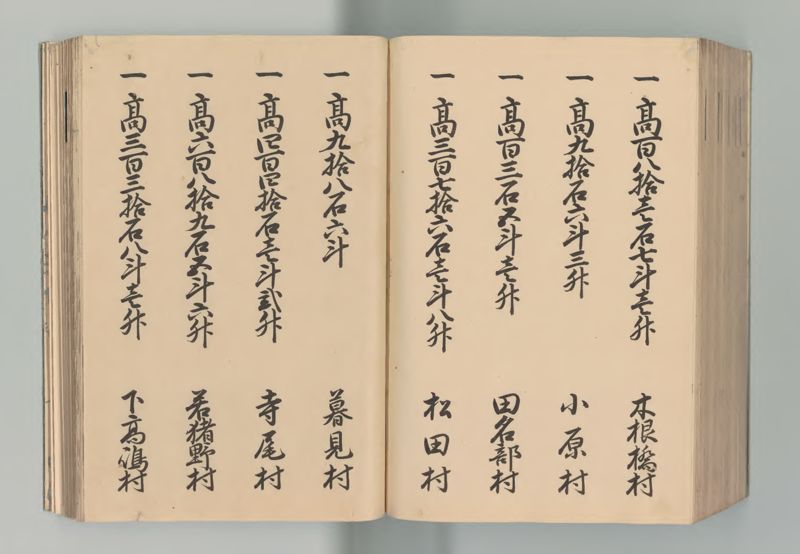 一 高百八拾壱石七斗壱升 木根橋村
一 高九拾石六斗三升 小原村
一 高百三石五斗壱升 田名部村
一 高三百七拾六石壱斗八升 松田村
一 高九拾八石六斗 暮見村
一 高四百四拾石壱斗弐升 寺尾村
一 高六百八拾九石五斗六升 若猪野村
一 高三百三拾石八斗壱升 下高嶋村